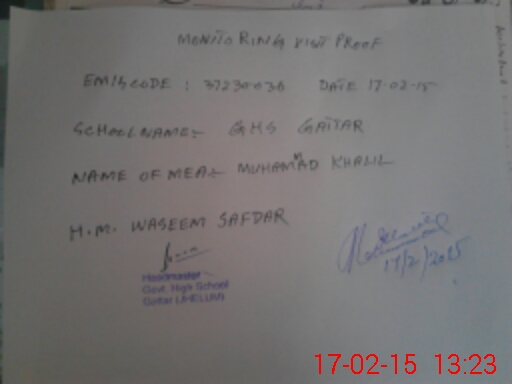 MONITORING VISIT PROOF
EMIS CODE : 37230036 DATE 17-02-15
SCHOOL NAME:- GHS GAITAR
NAME OF MEA:- MUHAMMAD KHALIL
H.M. WASEEM SAFDAR
Headmaster
Govt. High School
Gaitar (JHELUM)
17/2/2015
17-02-15 13:23